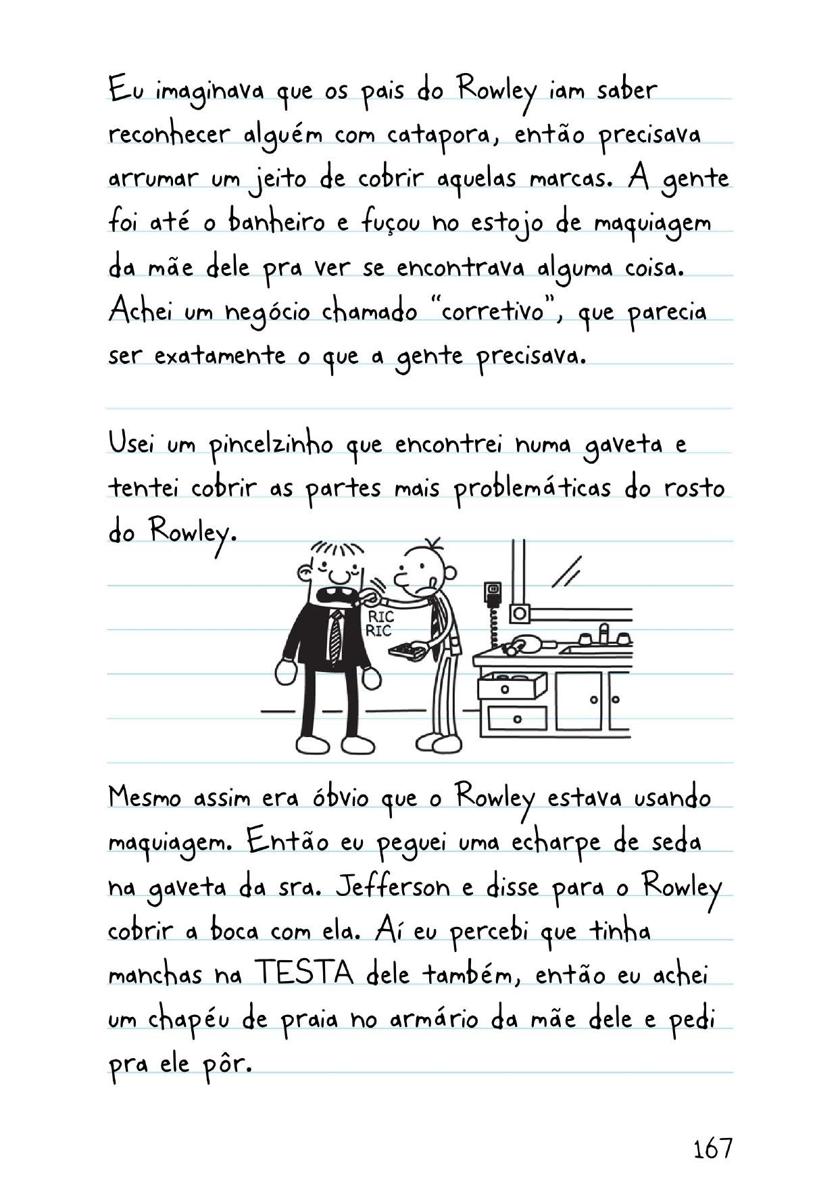 Eu imaginava que os pais do Rowley iam saber
reconhecer alguém com catapora, então precisava
arrumar um jeito de cobrir aquelas marcas. A gente
foi até o banheiro e fuçou no estojo de maquiagem
da mãe dele pra ver se encontrava alguma coisa.
Achei um negócio chamado “corretivo”, que parecia
ser exatamente o que a gente precisava.
Usei um pincelzinho que encontrei numa gaveta e
tentei cobrir as partes mais problemáticas do rosto
do Rowley.
RIC
RIC
Mesmo assim era óbvio que o Rowley estava usando
maquiagem. Então eu peguei uma echarpe de seda
na gaveta da sra. Jefferson e disse para o Rowley
cobrir a boca com ela. Aí eu percebi que tinha
manchas na TESTA dele também, então eu achei
um chapéu de praia no armário da mãe dele e pedi
pra ele pôr.
167